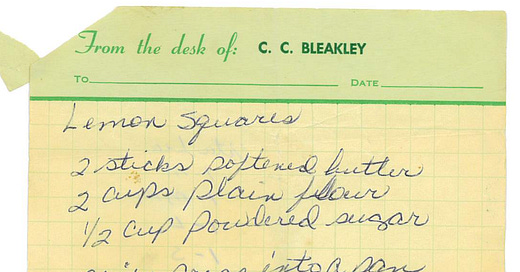 From the desk of: C. C. BLEAKLEY
TO DATE
Lemon Squares
2 sticks softened butter
2 cups plain flour
1/2 cup powdered sugar
into a pan